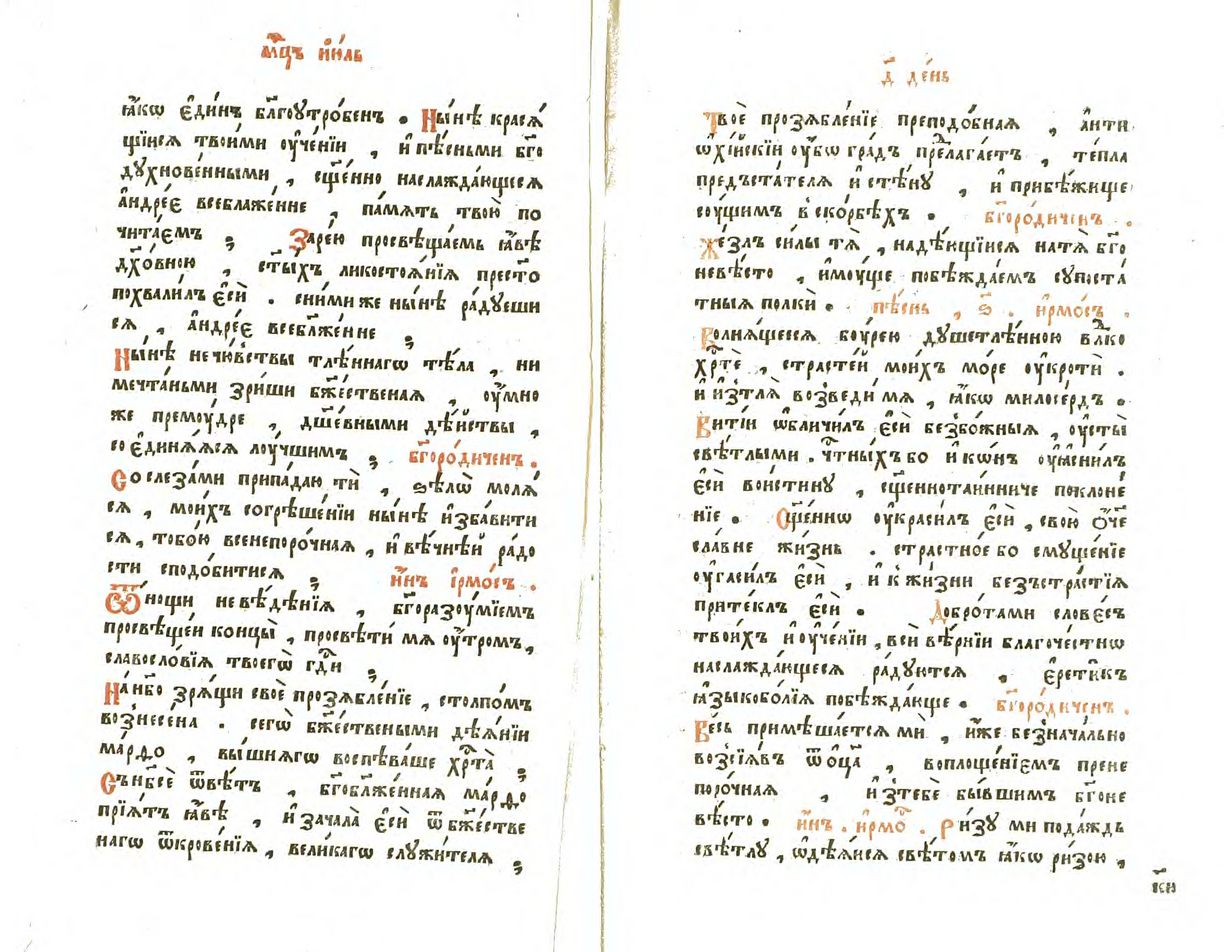 мцⷭ҇ъ і҆ю́ль
ꙗ҆́кѡ є҆ди́нъ бл҃гоꙋтро́бенъ . Ны́нѣ краса́
щїисѧ твои́ми оу҆че́нїи , и҆ пѣ́сньми бг҃о
дꙋхнове́нными , сщ҃е́нно наслажда́ющесѧ
а҆ндре́є всеблаже́нне , па́мѧть твою̀ по
чита́емъ ; Заре́ю просвѣща́емь ꙗ҆́вѣ
дх҃о́вною , ст҃ы́хъ ликостоѧ́нїѧ престо
похвали́лъ є҆сѝ . сни́миже ны́нѣ ра́дꙋеши
сѧ , а҆ндре́є всебл҃же́нне ;
Ны́нѣ нечю́вствы тлѣ́ннагѡ тѣ́ла , ни
мечта́ньми зри́ши бж҃е́ственаѧ , оу҆́мно
же премоу́дре , дш҃е́вными дѣ́йствы ,
соединѧ́ѧсѧ лоу́чшимъ ; бг҃оро́диченъ .
Со слеза́ми припа́даю тѝ , ѕѣлѡ̀ молѧ́
сѧ , мои́хъ согрѣше́нїи ны́нѣ и҆зба́вити
сѧ , тобо́ю всенепоро́чнаѧ , и҆ вѣ́чнѣй ра́до
сти сподо́битисѧ ; и҆́нъ і҆рмо́съ .
Ѿ но́щи невѣ́дѣнїѧ , бг҃оразꙋ́мїемъ
просвѣще́и концы̀ , просвѣти́ мѧ оу҆́тромъ ,
славосло́вїѧ твоегѡ̀ гдⷭ҇и ;
На нб҃о зрѧ́щи своѐ прозѧбле́нїе , столпо́мъ
вознесена . сегѡ̀ бж҃е́ствеными дѣѧ́нїи
ма́рѳо , вы́шнѧгѡ воспѣва́ше хрⷭ҇та̀ ;
Съ нб҃сѐ ѿвѣ́тъ , бг҃обл҃же́ннаѧ ма́рѳо
прїѧ́тъ ꙗ҆́вѣ , и҆ зачала̀ є҆сѝ ѿ бж҃е́стве
нагѡ ѿкрове́нїѧ , вели́кагѡ слꙋжи́телѧ ;
д҃ де́нь
Твоѐ прозѧбле́нїе преподо́бнаѧ , а҆нти
ѡхі́йскїи оу҆́бѡ гра́дъ предⷧ҇ага́етъ , те́пла
предъста́телѧ и҆ стѣ́нꙋ , и҆ прибѣ́жище
соу́щимъ в ско́рбѣхъ . бг҃оро́диченъ .
Же́злъ си́лы тѧ̀ , надѣ́ющїисѧ на тѧ̀ бг҃о
невѣ́сто , и҆мꙋ́ще побѣжда́емъ сꙋпоста́
тныѧ полкѝ . пѣ́снь , ѕ҃ . і҆рмо́съ .
Волнѧ́щеесѧ боу́рею дꙋшетлѣ́нною влⷣко
хрⷭ҇тѐ , страсте́й мои́хъ мо́ре оу҆кротѝ .
и҆ и҆з тлѧ̀ возведи́ мѧ , ꙗ҆́кѡ милосе́рдъ .
Вити́и ѡ҆бличи́лъ є҆сѝ безбо́жныѧ , оу҆сты̀
свѣ́тлыми . чⷭ҇тны́хъ бо и҆кѡ́нъ оу҆ꙗсни́лъ
є҆сѝ вои́стинꙋ , сщ҃еннота́инниче поклоне́
нїе . Сщ҃е́ннѡ оу҆краси́лъ є҆сѝ , свою̀ ѻ҆́ч҃е
сла́вне жи́знь . стра́стное бо смꙋще́нїе
оу҆гаси́лъ є҆сѝ , и҆ к жи́зни безъстра́стїѧ
прите́клъ є҆сѝ . Добро́тами слове́съ
твои́хъ и҆ оу҆че́нїи , всѝ вѣ́рнїи благоче́стнѡ
наслажда́ющесѧ ра́дꙋютсѧ . є҆рети́къ
ꙗ҆зыкобо́лїѧ побѣжда́юще . бг҃оро́диченъ .
Ве́сь примѣша́етсѧ мѝ , и҆́же безнача́льно
возсїѧ́въ ѿ ѻ҆ц҃а̀ , воплоще́нїемъ прене
поро́чнаѧ , и҆з тебе́ бы́вшимъ бг҃оне
вѣ́сто . и҆́нъ . і҆рмоⷭ҇ . Ри́зꙋ ми пода́ждь
свѣ́тлꙋ , ѡ҆дѣѧ́исѧ свѣ́томъ ꙗ҆́кѡ ри́зою ,
к҃и